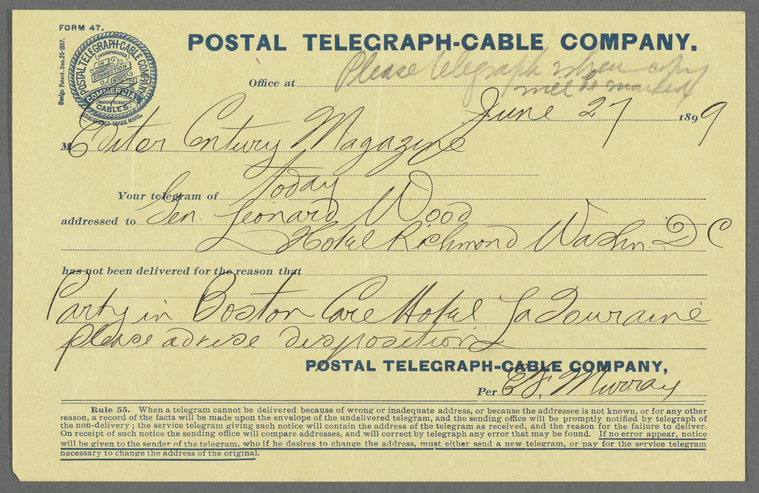 FORM 47.
POSTAL TELEGRAPH-CABLE COMPANY.
Design Patent
POSTAL TELEGRAPH-CABLE COMPANY
COMMERCIAL
CABLES.
REGISTERED TRADE MARK.
Office at Please telegraph when copy
will be mailed
June 27 1899
M Editor Century Magazine
Your telegram of today
addressed to Gen. Leonard Wood
Hotel Richmond Washn. D C
has not been delivered for the reason that
Party in Boston Care Hotel Touraine
please advise disposition
POSTAL TELEGRAPH-CABLE COMPANY,
Per Murray
Rule 55. When a telegram cannot be delivered because of wrong or inadequate address, or because the addressee is not known, or for any other
reason, a record of the facts will be made upon the envelope of the undelivered telegram, and the sending office will be promptly notified by telegraph of
the non-delivery; the service telegram giving such notice will contain the address of the telegram as received, and the reason for the failure to deliver.
On receipt of such notice the sending office will compare addresses, and will correct by telegraph any error that may be found. If no error appear, notice
will be given to the sender of the telegram, who if he desires to change the address, must either send a new telegram, or pay for the service telegram
necessary to change the address of the original.